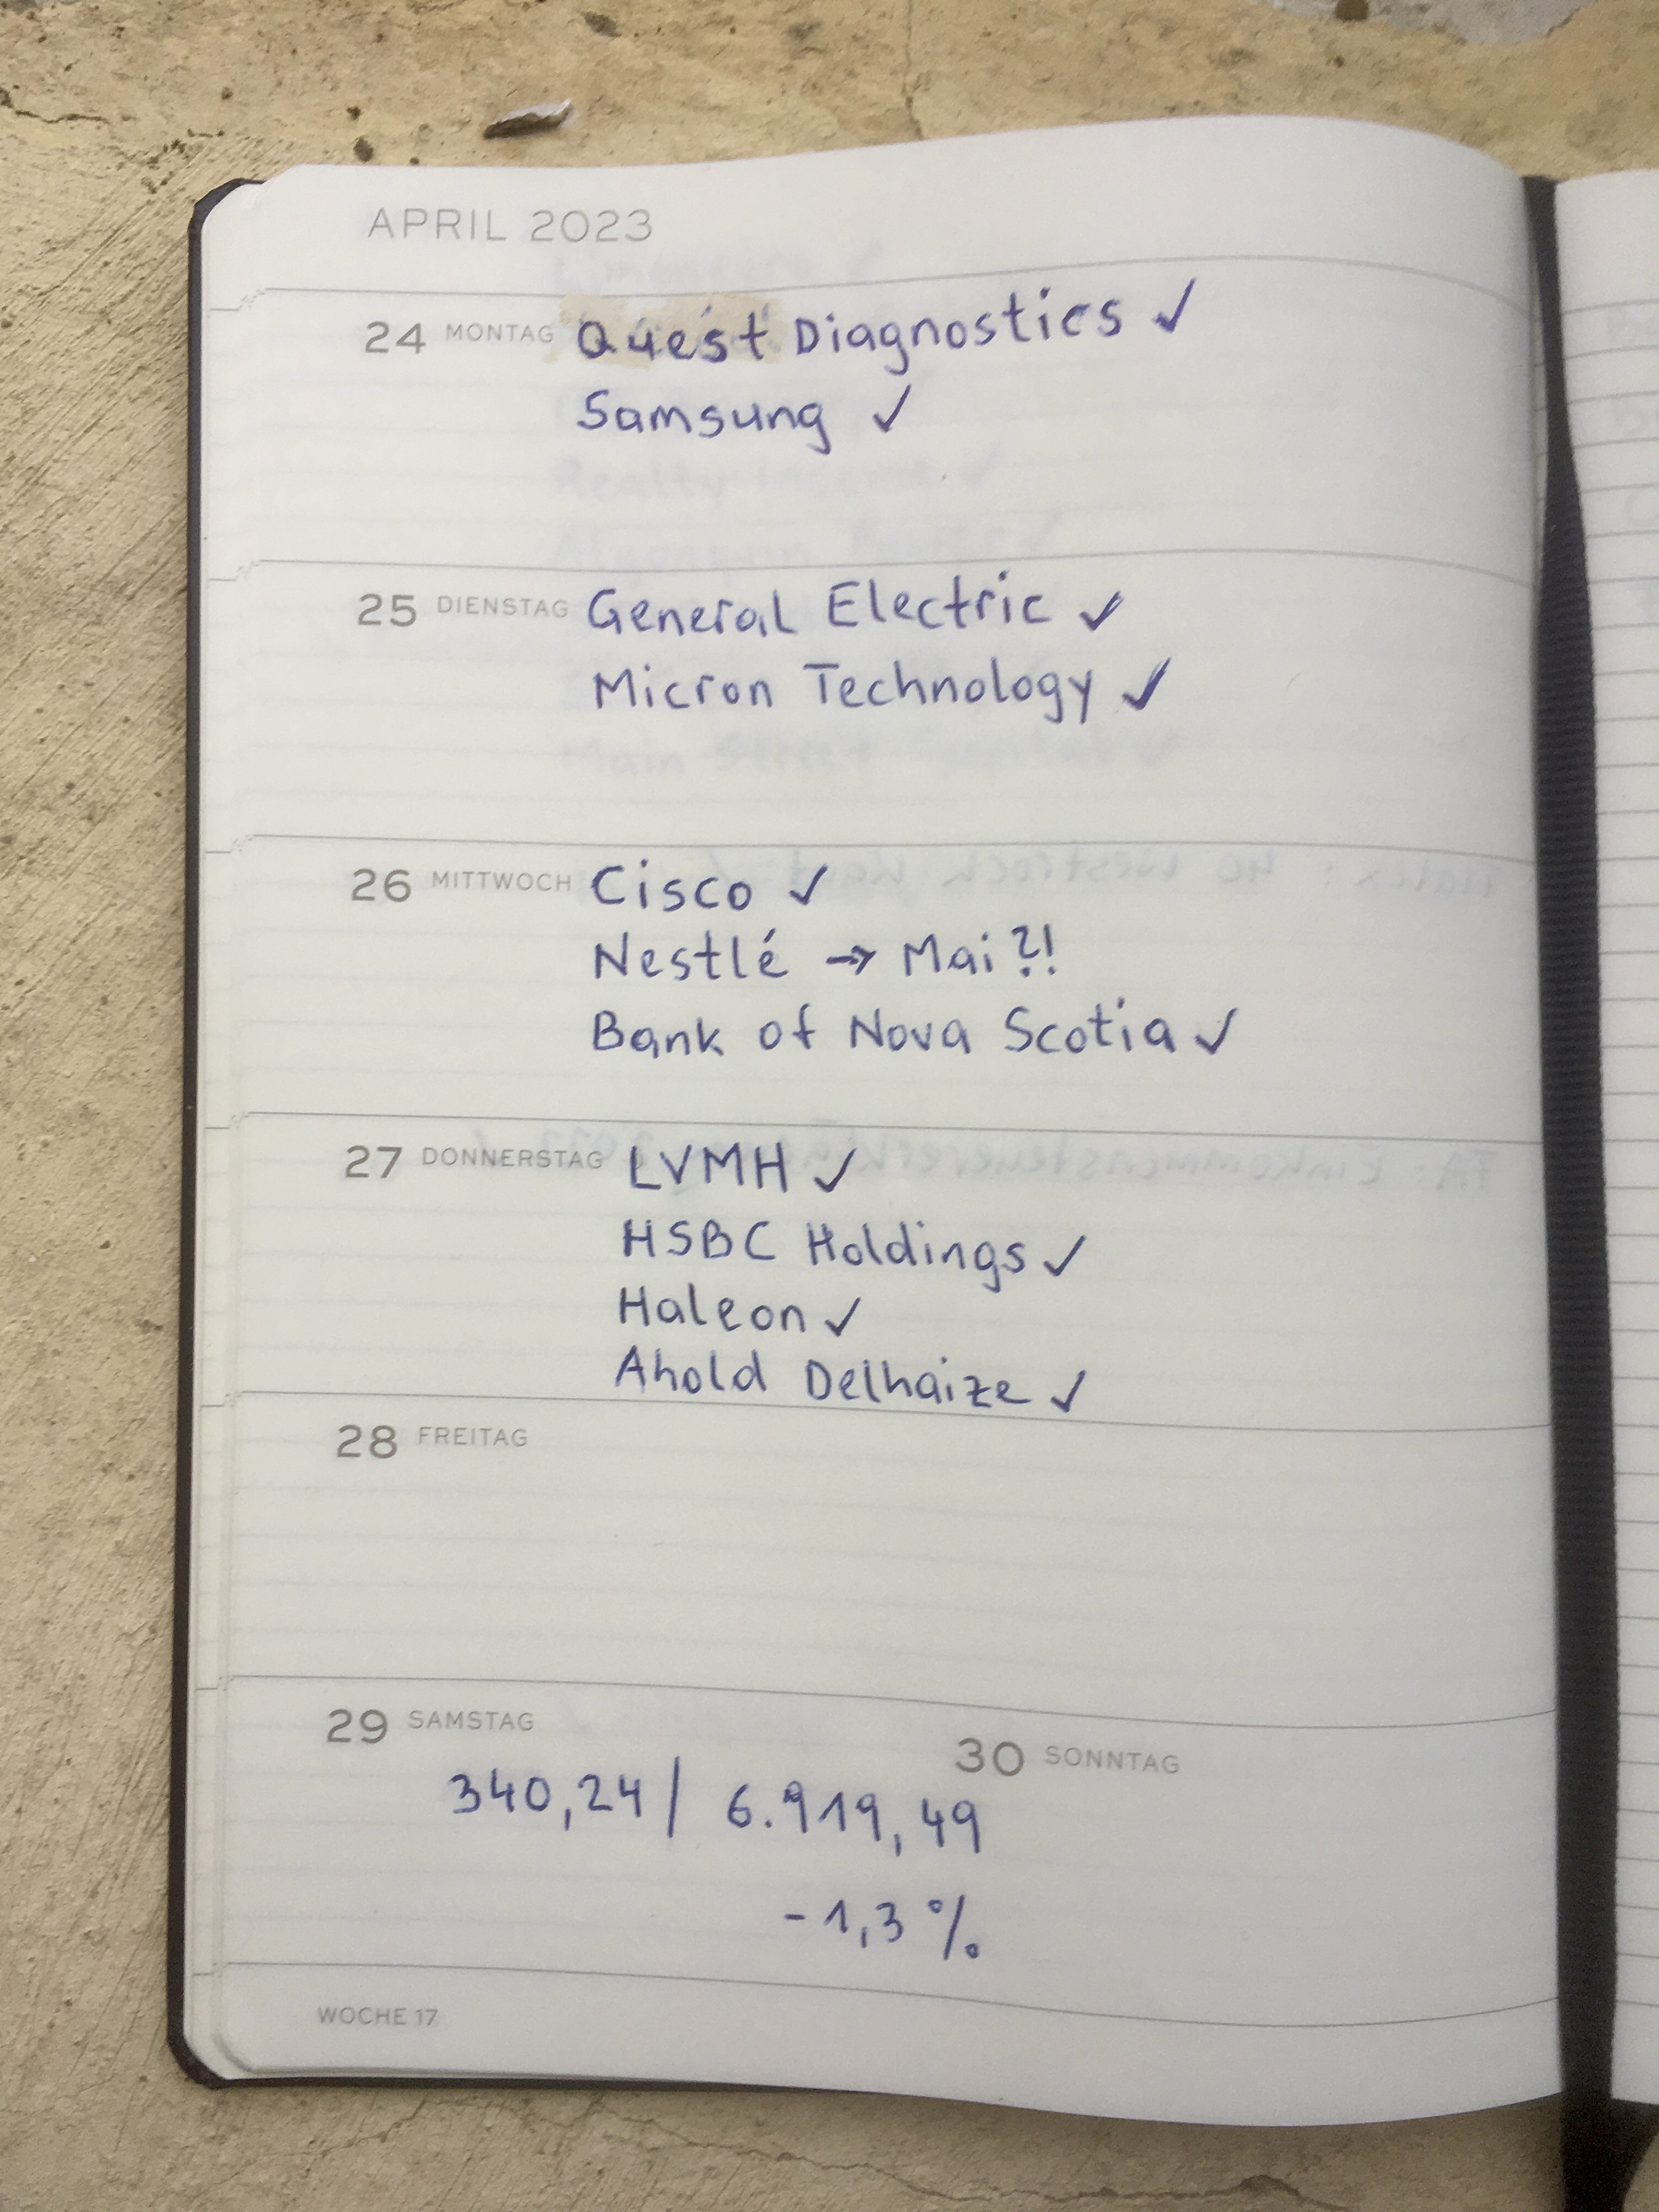 APRIL 2023
24 MONTAG Quest Diagnostics ✓
Samsung ✓
25 DIENSTAG General Electric ✓
Micron Technology ✓
26 MITTWOCH Cisco ✓
Nestlé → Mai ?!
Bank of Nova Scotia ✓
27 DONNERSTAG LVMH ✓
HSBC Holdings ✓
Haleon ✓
Ahold Delhaize ✓
28 FREITAG
29 SAMSTAG
30 SONNTAG
340,24 / 6.919,49
-1,3 %
WOCHE 17